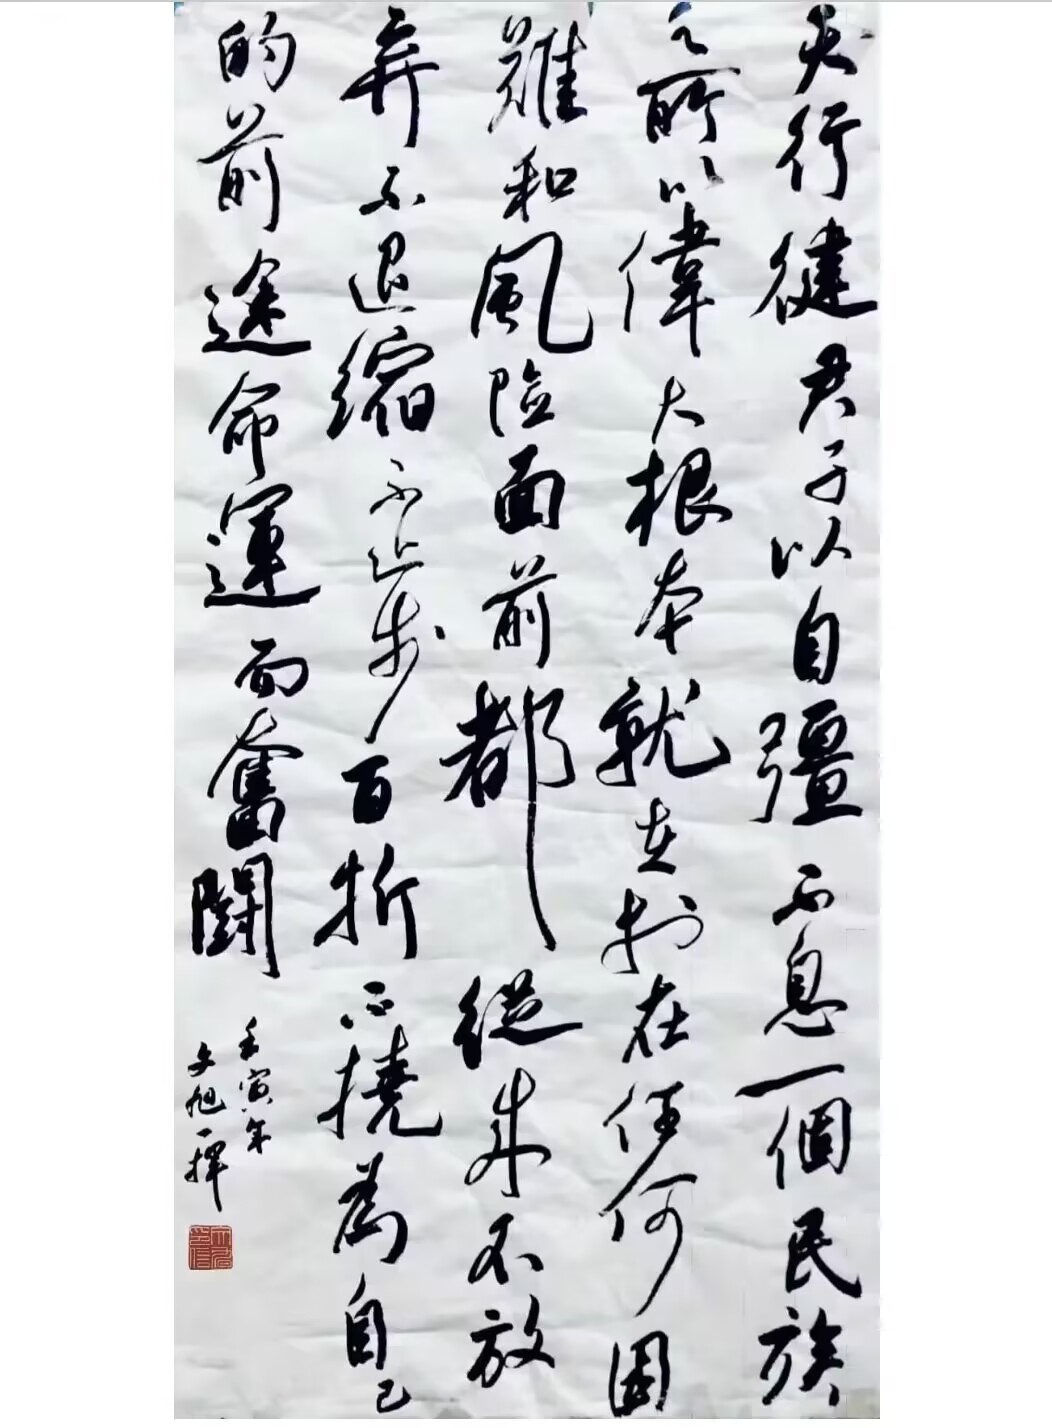 天行健君子以自彊不息一個民族
之所以偉大根本就在于在任何困
難和風险面前都從来不放
弃不退縮不止步百折不撓為自己
的前途命運而奮鬪
壬寅年
文旭一揮